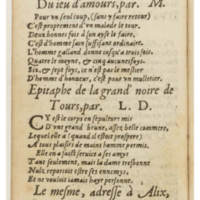 Du ieu d'amours, par. M.
Pour un seul coup, (sans y faire retour)
C'est proprement d'un malade le tour.
Deux bonnes fois à son aise le faire,
C'est d'homme sain suffisant ordinaire.
L'homme galant donne iusqu'à trois fois,
Quatre le moyne, & cinq aucunesfois.
Six, & sept fois, ce n'est pas le mestier
D'homme d'honneur, c'est pour un mulletier.
Epitaphe de la grand' noire de
Tours, par. L. D.
CY est le corps en sepulture mis
D'une grand' brune, assez belle commere,
Lequel elle a
à tous plaisirs de maint homme permis.
Elle en a joüi servie à ses amys
Tant seulement, mais la dame tresbonne
Nuls, reputoit estre ses ennemis,
Et ne vouloit iamais hayr personne.
Le mesme, adresse à Alix,